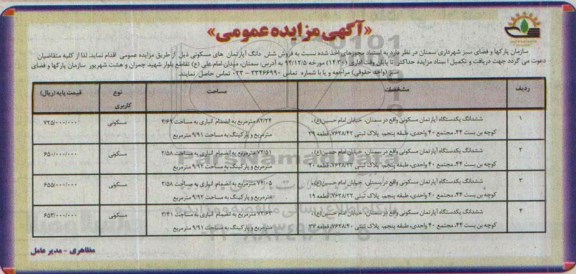 «آگهی مزایده عمومی»
سازمان پارکها و فضای سبز شهرداری سمنان در نظر دارد به استناد مجوزهای اخذ شده نسبت به فروش شش دانگ آپارتمان های مسکونی ذیل از طریق مزایده عمومی اقدام نماید. لذا از کلیه متقاضیان
دعوت می گردد جهت دریافت و تکمیل اسناد مزایده حداکثر تا پایان وقت اداری (۱۴:۳۰) مورخه ۹۳/۱۲/۵ به آدرس: سمنان، میدان امام علی (ع) تقاطع بلوار شهید چمران و هشت شهریور سازمان پارکها و فضای
سبز (واحد حقوقی) مراجعه و یا با شماره تماس ۳۳۴۶۶۹۹۰ - ۰۲۳ تماس حاصل نمایند.
ردیف مشخصات مساحت نوع کاربری قیمت پایه (ریال)
۱ ششدانگ یکدستگاه آپارتمان مسکونی واقع در سمنان، خیابان امام حسین(ع)، مترمربع به انضمام انباری به مساحت مسکونی ۷۲۵/۰۰۰/۰۰۰
کوچه بن بست ۴۴، مجتمع ۴۰ واحدی، طبقه پنجم، پلاک ثبتی قطعه ۳۹ مترمربع و پارکینگ به مساحت ۹/۹۲ مترمربع
۲ ششدانگ یکدستگاه آپارتمان مسکونی واقع در سمنان، خیابان امام حسین(ع)، مترمربع به انضمام انباری به مساحت ۲/۵۸ مسکونی ۶۵۰/۰۰۰/۰۰۰
کوچه بن بست ۴۴، مجتمع ۴۰ واحدی، طبقه پنجم، پلاک ثبتی مترمربع و پارکینگ به مساحت ۹/۹۱ مترمربع
۳ ششدانگ یکدستگاه آپارتمان مسکونی واقع در سمنان، خیابان امام حسین(ع)، مترمربع به انضمام انباری به مساحت ۲/۵۸ مسکونی ۶۵۵/۰۰۰/۰۰۰
کوچه بن بست ۴۴، مجتمع ۴۰ واحدی، طبقه پنجم، پلاک ثبتی مترمربع و پارکینگ به مساحت ۹/۹۱ مترمربع
۴ ششدانگ یکدستگاه آپارتمان مسکونی واقع در سمنان، خیابان امام حسین(ع)، مترمربع به انضمام انباری به مساحت ۲/۴۱ مسکونی ۶۵۳/۰۰۰/۰۰۰
کوچه بن بست ۴۴، مجتمع ۴۰ واحدی، طبقه پنجم، پلاک ثبتی قطعه ۳۷ مترمربع و پارکینگ به مساحت ۹/۹۱ مترمربع
مظاهری - مدیر عامل